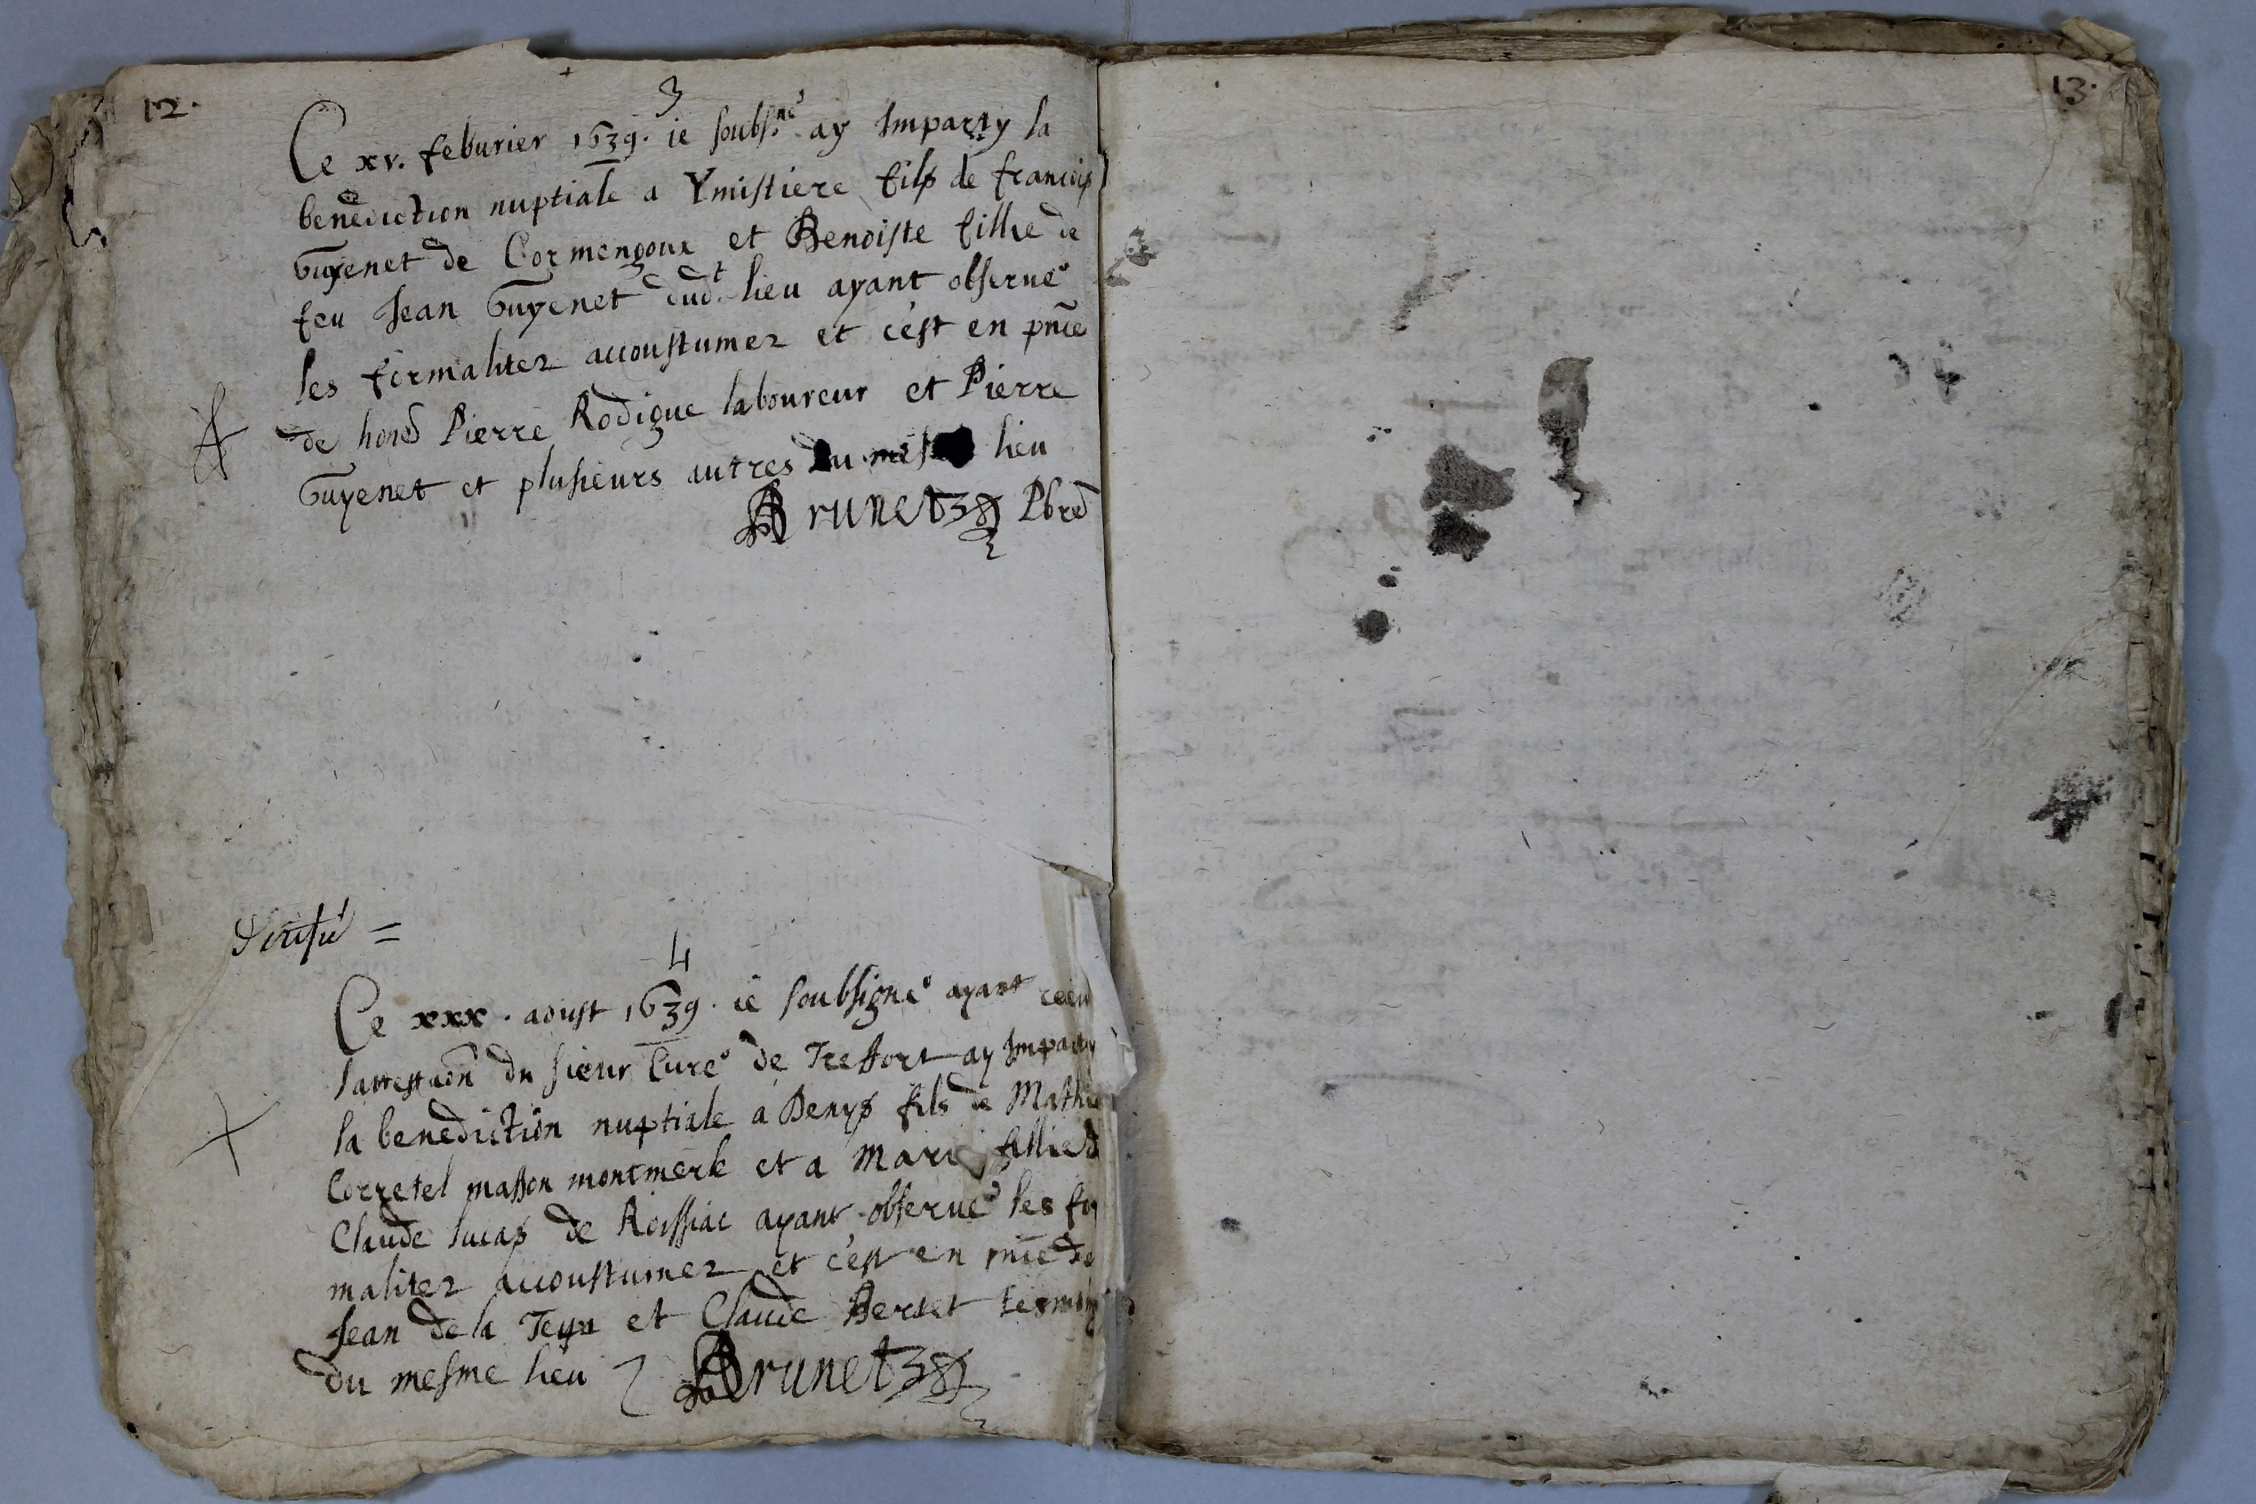 12.
3
Ce xv. feburier 1639. ie soubs.né ay Imparty la
benediction nuptiale a Ymistiere fils de francois
Guyenet de Cormengoux et Benoiste fillie de
feu Jean Guyenet dud.t lieu ayant obserué
les formalitez accoustumez et c'est en pnce
de hone Pierre Rodigue laboureur et Pierre
Guyenet et plusieurs autres du lieu
Brunet Pbre
4
Ce xxx. aoust 1639. ie soubsigné ayant receu
l'attestaon du sieur Curé de Treffort ay Imparty
la benediction nuptiale a Denys fils de Mathie
Corretel masson montmerle et a Marie fillie d
Claude lucas de Roissiac ayant obserué les for
malitez accoustumez et c'est en pnce de
Jean de la Teyn et Claude Bertet tesmoing
du mesme lieu Brunet
13.